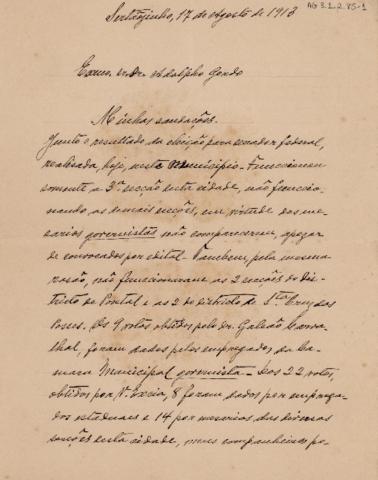 AG 3.1.2.85-1
Sertãosinho, 17 de Agosto de 1913
Exmo. sr. Dr. Adolpho Gordo
Minhas saudações.
Junto o resultado da eleição para senador federal,
realisada, hoje, neste municipio - Funccionou
somente a 3ª secção desta cidade, não funccio-
nando, as demais secções, em virtude dos me-
sarios governistas não comparecerem, apezar
de convocados por edital - Tambem, pela mesma
rasão, não funccionaram as 2 secções do dis-
tricto de Pontal e as 2 do districto de Sta. Cruz das
Posses. Os 9 votos obtidos pelo dr. Galeão Carva-
lhal, foram dados pelos empregados da Ca-
mara Municipal governista - Dos 22 votos,
obtidos por V. Excia, 8 foram dados por emprega-
dos estaduaes e 14 por mesarios das diversas
secções desta cidade, meus companheiros po-